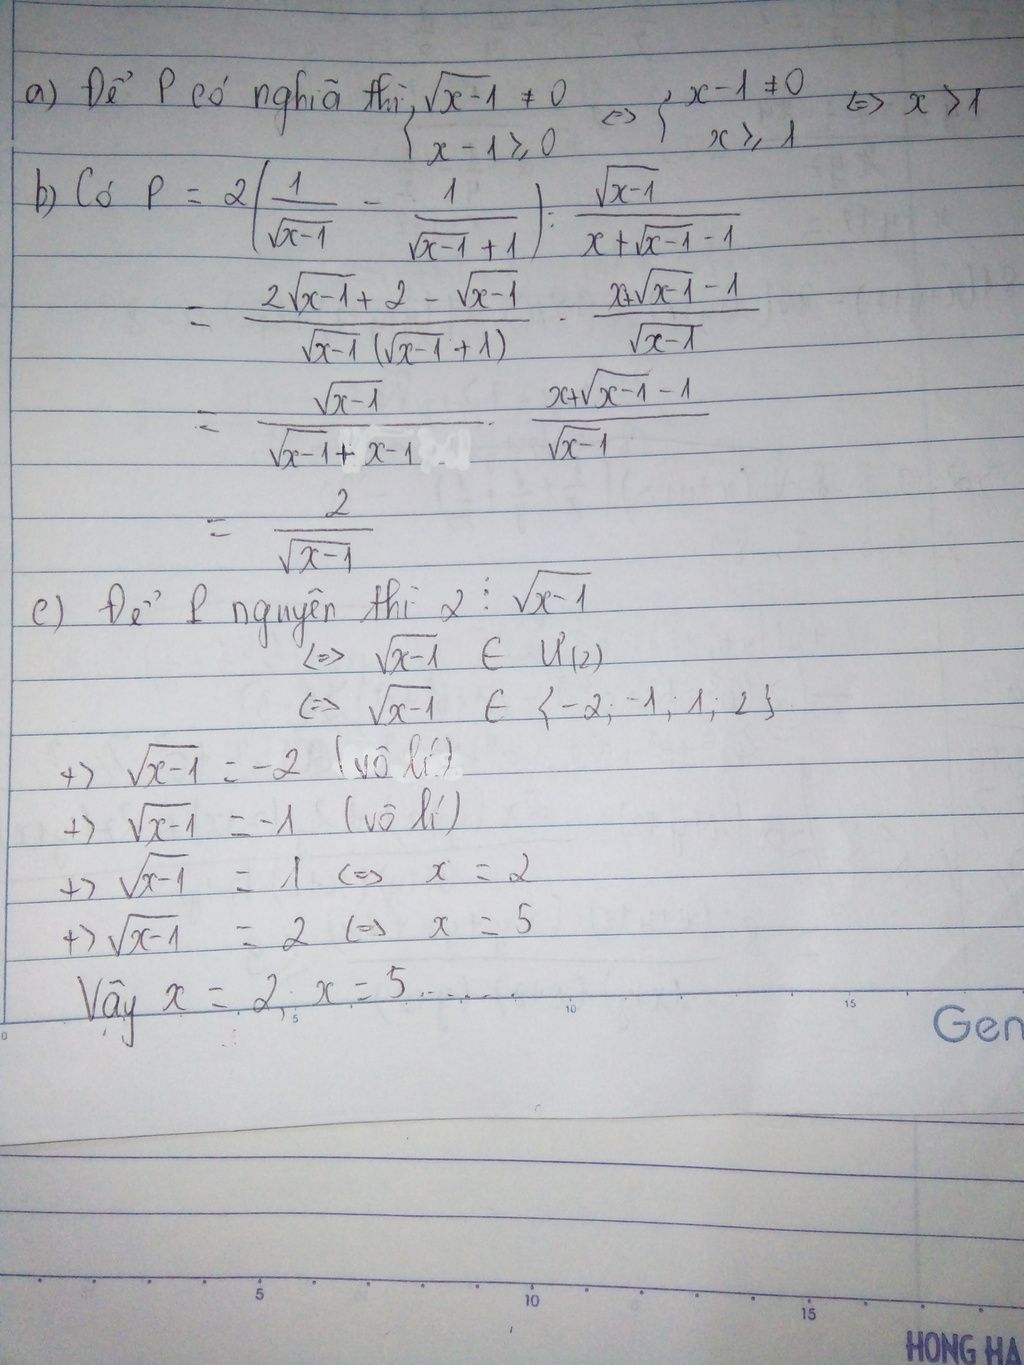 a) Để P có nghĩa thì { √(x-1) ≠ 0 ; x - 1 ⩾ 0 <=> { x - 1 ≠ 0 ; x ⩾ 1 <=> x > 1
b) Có P = 2(1/√(x-1) - 1/(√(x-1) + 1)) : √(x-1)/(x + √(x-1) - 1)
= (2√(x-1) + 2 - √(x-1))/(√(x-1) (√(x-1) + 1)) . (x + √(x-1) - 1)/√(x-1)
= √(x-1)/(√(x-1) + x - 1) . (x + √(x-1) - 1)/√(x-1)
= 2/√(x-1)
c) Để P nguyên thì 2 ⋮ √(x-1)
<=> √(x-1) ∈ Ư(2)
<=> √(x-1) ∈ {-2; -1; 1; 2}
+) √(x-1) = -2 (vô lí)
+) √(x-1) = -1 (vô lí)
+) √(x-1) = 1 <=> x = 2
+) √(x-1) = 2 <=> x = 5
Vậy x = 2, x = 5......
0 5 10 15
Gen
5 10 15
HONG HA